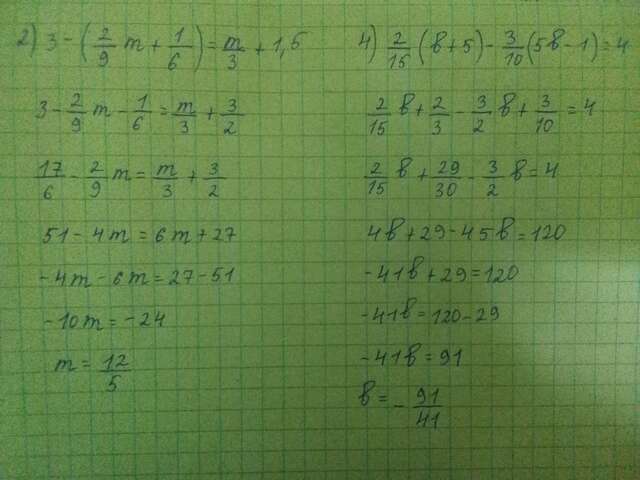 2) 3 - (2/9 m + 1/6) = m/3 + 1,5
3 - 2/9 m - 1/6 = m/3 + 3/2
17/6 - 2/9 m = m/3 + 3/2
51 - 4m = 6m + 27
-4m - 6m = 27 - 51
-10m = -24
m = 12/5
4) 2/15 (в + 5) - 3/10 (5в - 1) = 4
2/15 в + 2/3 - 3/2 в + 3/10 = 4
2/15 в + 29/30 - 3/2 в = 4
4в + 29 - 45в = 120
-41в + 29 = 120
-41в = 120 - 29
-41в = 91
в = - 91/41